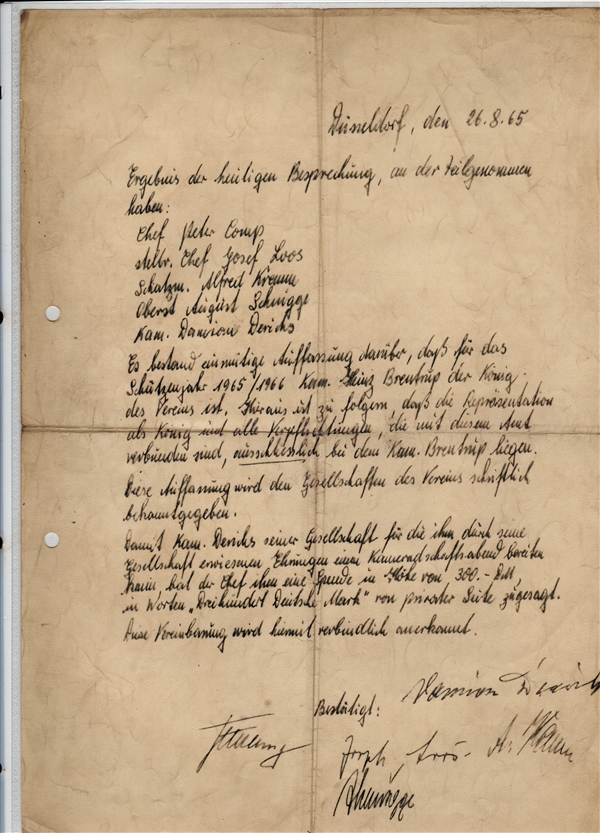 Düsseldorf, den 26.8.65
Ergebnis der heutigen Besprechung, an der teilgenommen
haben:
Chef Peter Comp
stellv. Chef Josef Loos
Schatzm. Alfred Kremm
Oberst August Schnigge
Kam. Damian Derichs
Es bestand einmütige Auffassung darüber, daß für das
Schützenjahr 1965/1966 Kam. Heinz Brentrup der König
des Vereins ist. Hieraus ist zu folgern, daß die Repräsentation
als König und alle Verpflichtungen, die mit diesem Amt
verbunden sind, ausschliesslich bei dem Kam. Brentrup liegen.
Diese Auffassung wird den Gesellschaften des Vereins schriftlich
bekanntgegeben.
Damit Kam. Derichs seiner Gesellschaft für die ihm durch seine
Gesellschaft erwiesenen Ehrungen einen Kameradschaftsabend bereiten
kann, hat der Chef ihm eine Spende in Höhe von 300.- DM,
in Worten „Dreihundert Deutsche Mark" von privater Seite zugesagt.
Diese Vereinbarung wird hiermit verbindlich anerkannt.
Bestätigt: Damian Derichs
Joseph Loos
Schnigge